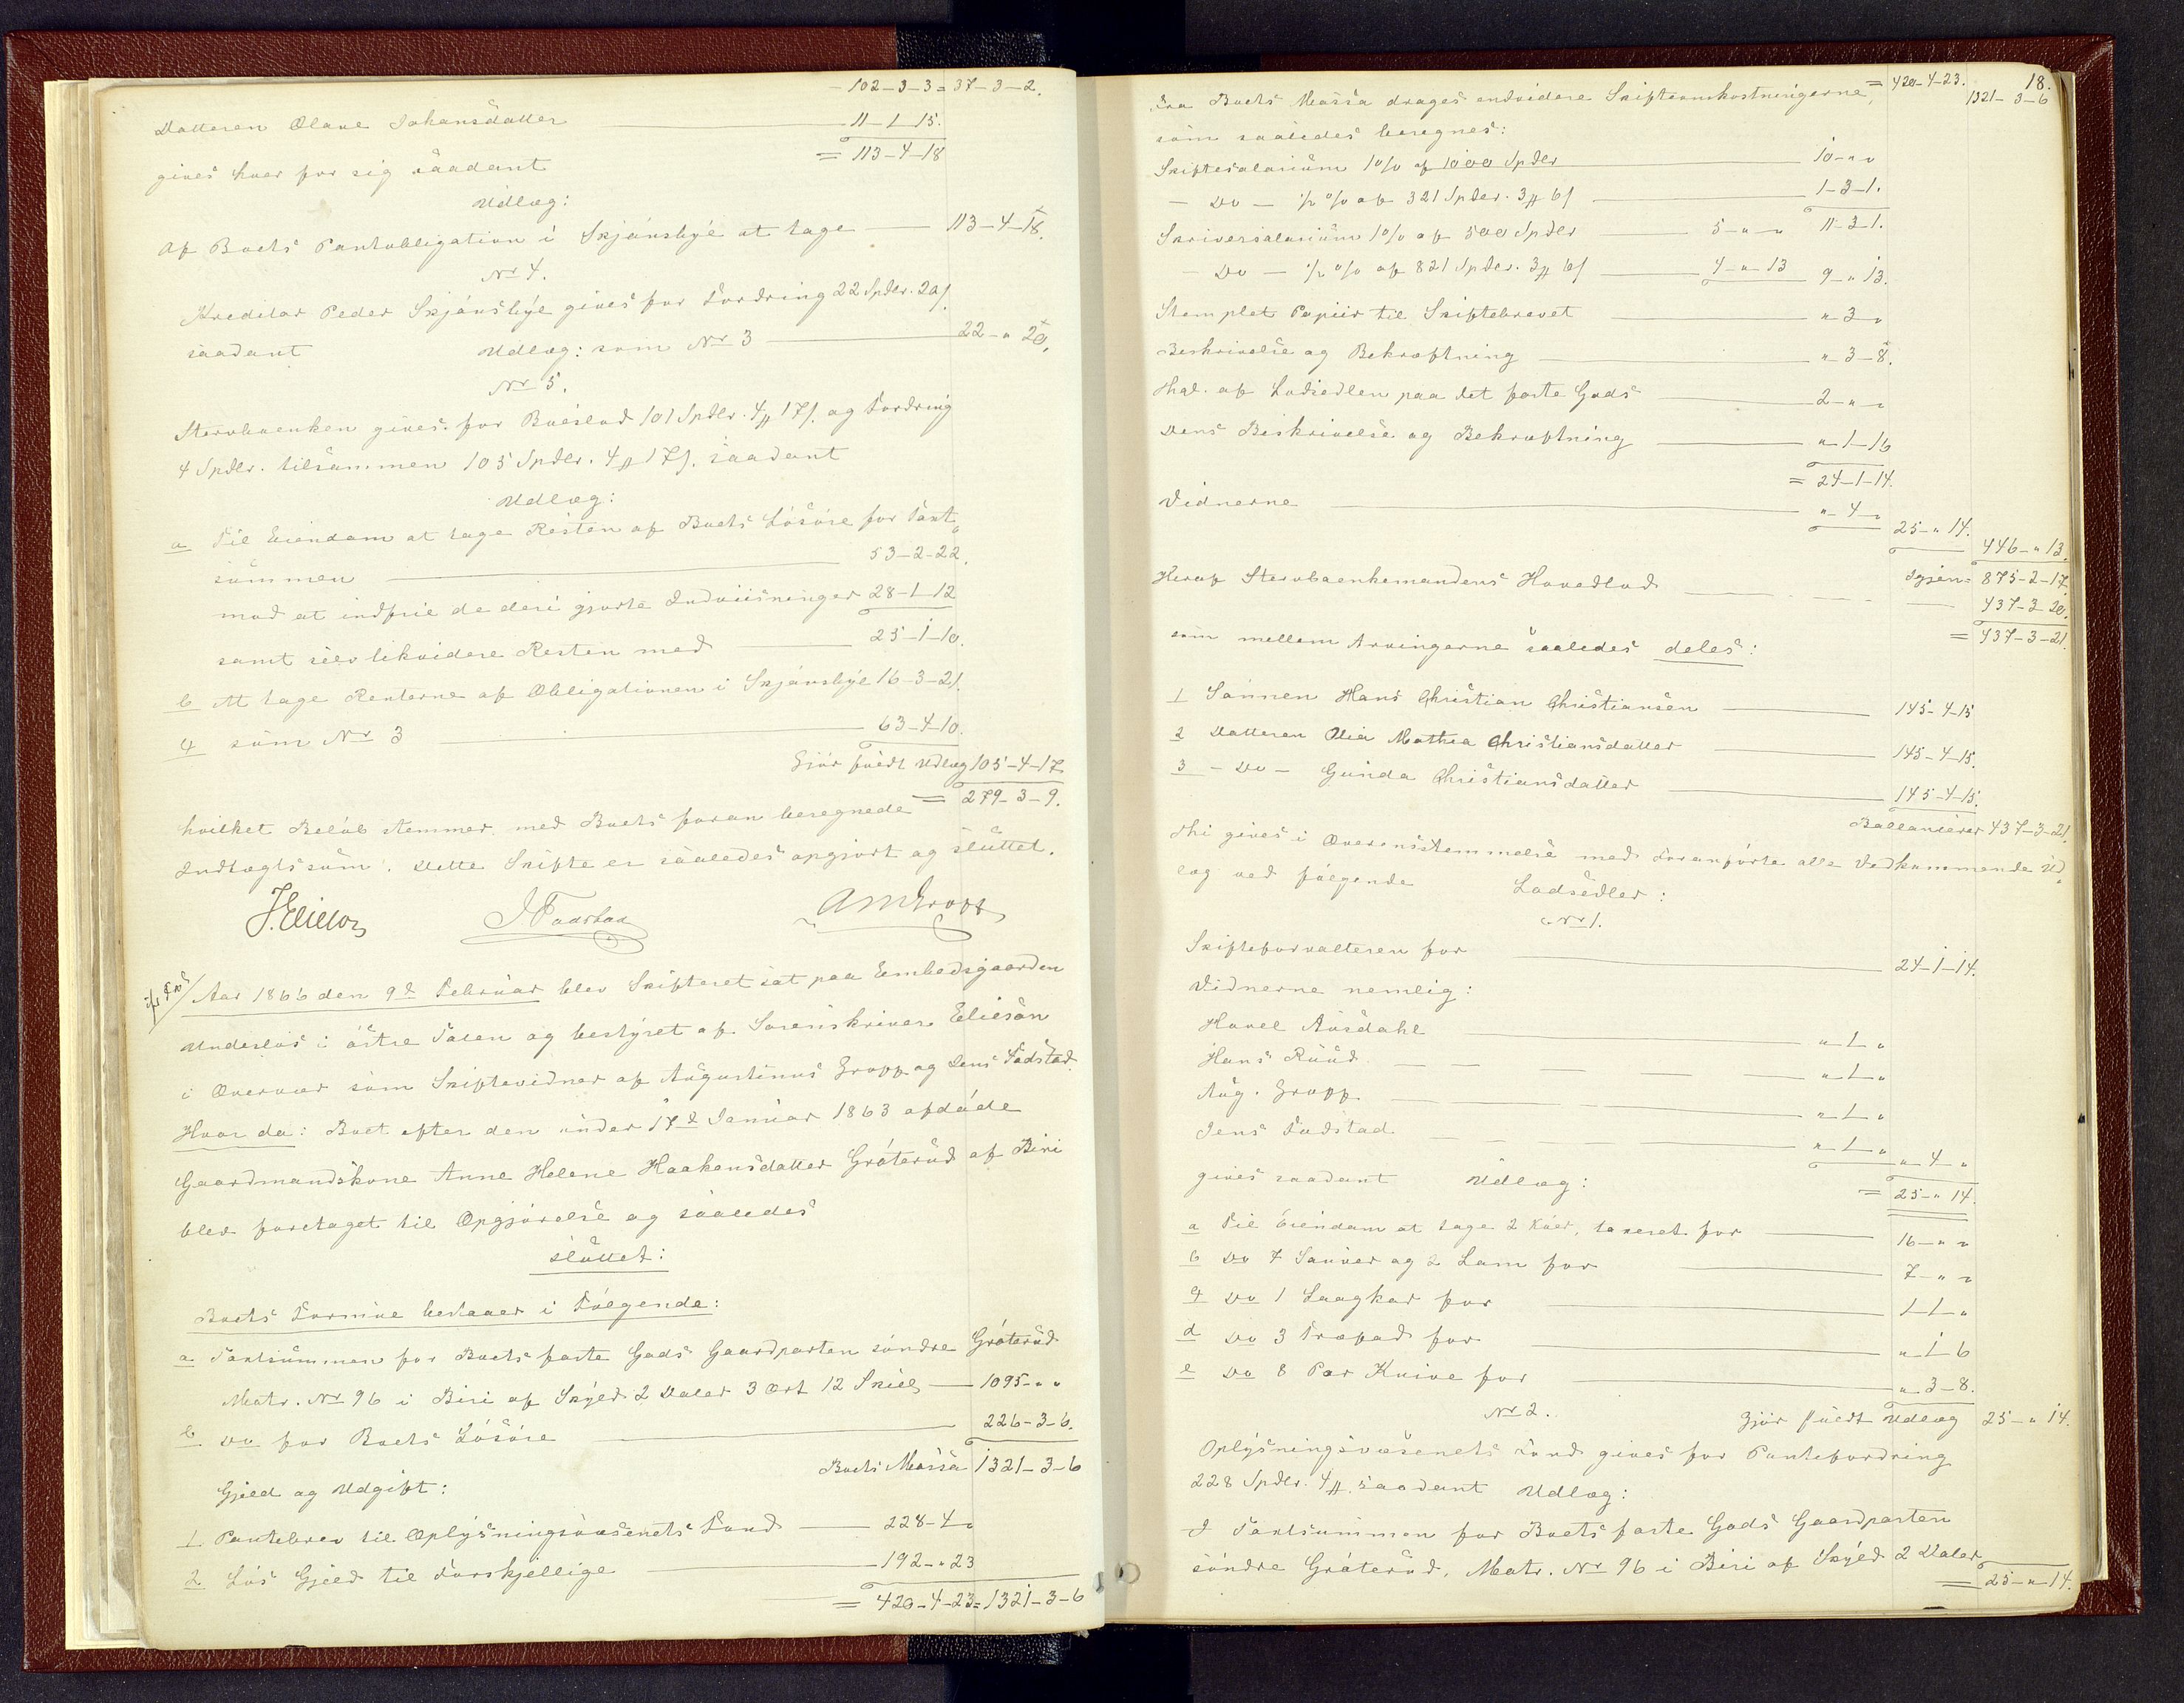 102-3-3 = 37-3-2.
Datteren Olave Johansdatter 11-1-15.
= 113-4-18
gives hver for sig saadant
Udlæg:
Af Boets Pantobligation i Skjønsbye at tage 113-4-18.
No 4.
Kreditor Peder Skjønsbye gives for Fordring 22 Spdlr. 20 s.
saadant Udlæg: som No 3 22 - " 20.
No 5.
Stervboenken gives for Boeslod 101 Spdlr. 4 # 17 s. og Fordring
4 Spdlr. tilsammen 105 Spdlr. 4 # 17 s. saadant
Udlæg:
a Til Eiendom at tage Resten af Boets Løsøre for Taxt-
summen 53-2-22.
mod at indfrie de deri gjorte Indviisninger 28-1-12
samt selv likvidere Resten med 25-1-10.
b At tage Renterne af Obligationen i Skjønsbye 16-3-21.
c som No 3 63-4-10.
Gjør fuldt Udlæg 105-4-17
= 279-3-9.
hvilket Beløb stemmer med Boets foran beregnede
Indtægtssum. Dette Skifte er saaledes opgjort og sluttet.
J. Elieson J. Fadstad A M Gropp
Aar 1866 den 9de Februar blev Skifteret sat paa Embedsgaarden
Underlos i østre Toten og bestyret af Sorenskriver Elieson
i Overvær som Skiftevidner af Augustinus Gropp og Jens Fadstad.
Hvor da: Boet efter den under 17de Januar 1863 afdøde
Gaardmandskone Anne Helene Haakensdatter Grøterud af Biri
blev foretaget til Opgjørelse og saaledes
sluttet:
Boets Formue bestaaer i Følgende:
a Taxtsummen for Boets faste Gods Gaardparten søndre Grøterud
Matr. No 96 i Biri af Skyld 2 Daler 3 Ort 12 Skill. 1095 - " "
b Do for Boets Løsøre 226-3-6.
Boets Massa 1321-3-6
Gjeld og Udgift:
1 Pantebrev til Oplysningsvæsenets Fond 228-4 "
2 Løs Gjeld til Forskjellige 192 - " 23
= 420-4-23 = 1321-3-6
18.
= 420-4-23. 1321-3-6
Fra Boets Massa drages endvidere Skifteomkostningerne,
som saaledes beregnes:
Skiftesalarium 1 % af 1000 Spdlr 10 - " "
- Do - ½ % af 321 Spdlr. 3 # 6 s 1-3-1.
11-3-1.
Skriversalarium 1 % af 500 Spdlr 5 - " - "
- Do - ½ % af 821 Spdlr. 3 # 6 s 4 - " - 13 9 " 13.
Stemplet Papiir til Skiftebrevet " 3 "
Beskrivelse og Bekræftning " 3-8.
Thgl. af Lodsedlen paa det faste Gods 2 - " "
Dens Beskrivelse og Bekræftning " 1-16
= 24-1-14.
Vidnerne " 4 "
25 - " 14.
446 - " 13.
Igjen = 875-2-17.
Heraf Stervboenkemandens Hovedlod 437-3-20.
= 437-3-21.
som mellem Arvingerne saaledes deles:
1 Sønnen Hans Christian Christiansen 145-4-15
2 Datteren Olea Mathea Christiansdatter 145-4-15.
3 - Do - Gunda Christiansdatter 145-4-15.
Ballancerer 437-3-21.
Thi gives i Overensstemmelse med Foranførte alle Vedkommende Ud-
læg ved følgende Lodsedler:
No 1.
Skifteforvalteren for 24-1-14.
Vidnerne nemlig:
Havel Aasdahl " 1 "
Hans Ruud " 1 "
Aug. Gropp " 1 "
Jens Fadstad " 1 "
" 4 "
gives saadant Udlæg: = 25 - " 14.
a Til Eiendom at tage 2 Køer, taxeret for 16 - " "
b Do 7 Sauer og 2 Lam for 7 - " "
c Do 1 Laagkar for 1-1 "
d Do 3 Træfad for " 1-6
e Do 8 Par Knive for " 3-8.
Gjør fuldt Udlæg 25 - " 14.
No 2.
Oplysningsvæsenets Fond gives for Pantefordring
228 Spdlr. 4 # saadant Udlæg:
I Taxtsummen for Boets faste Gods Gaardparten
søndre Grøterud, Matr. No 96 i Biri af Skyld 2 Daler
= 25 - " - 14.